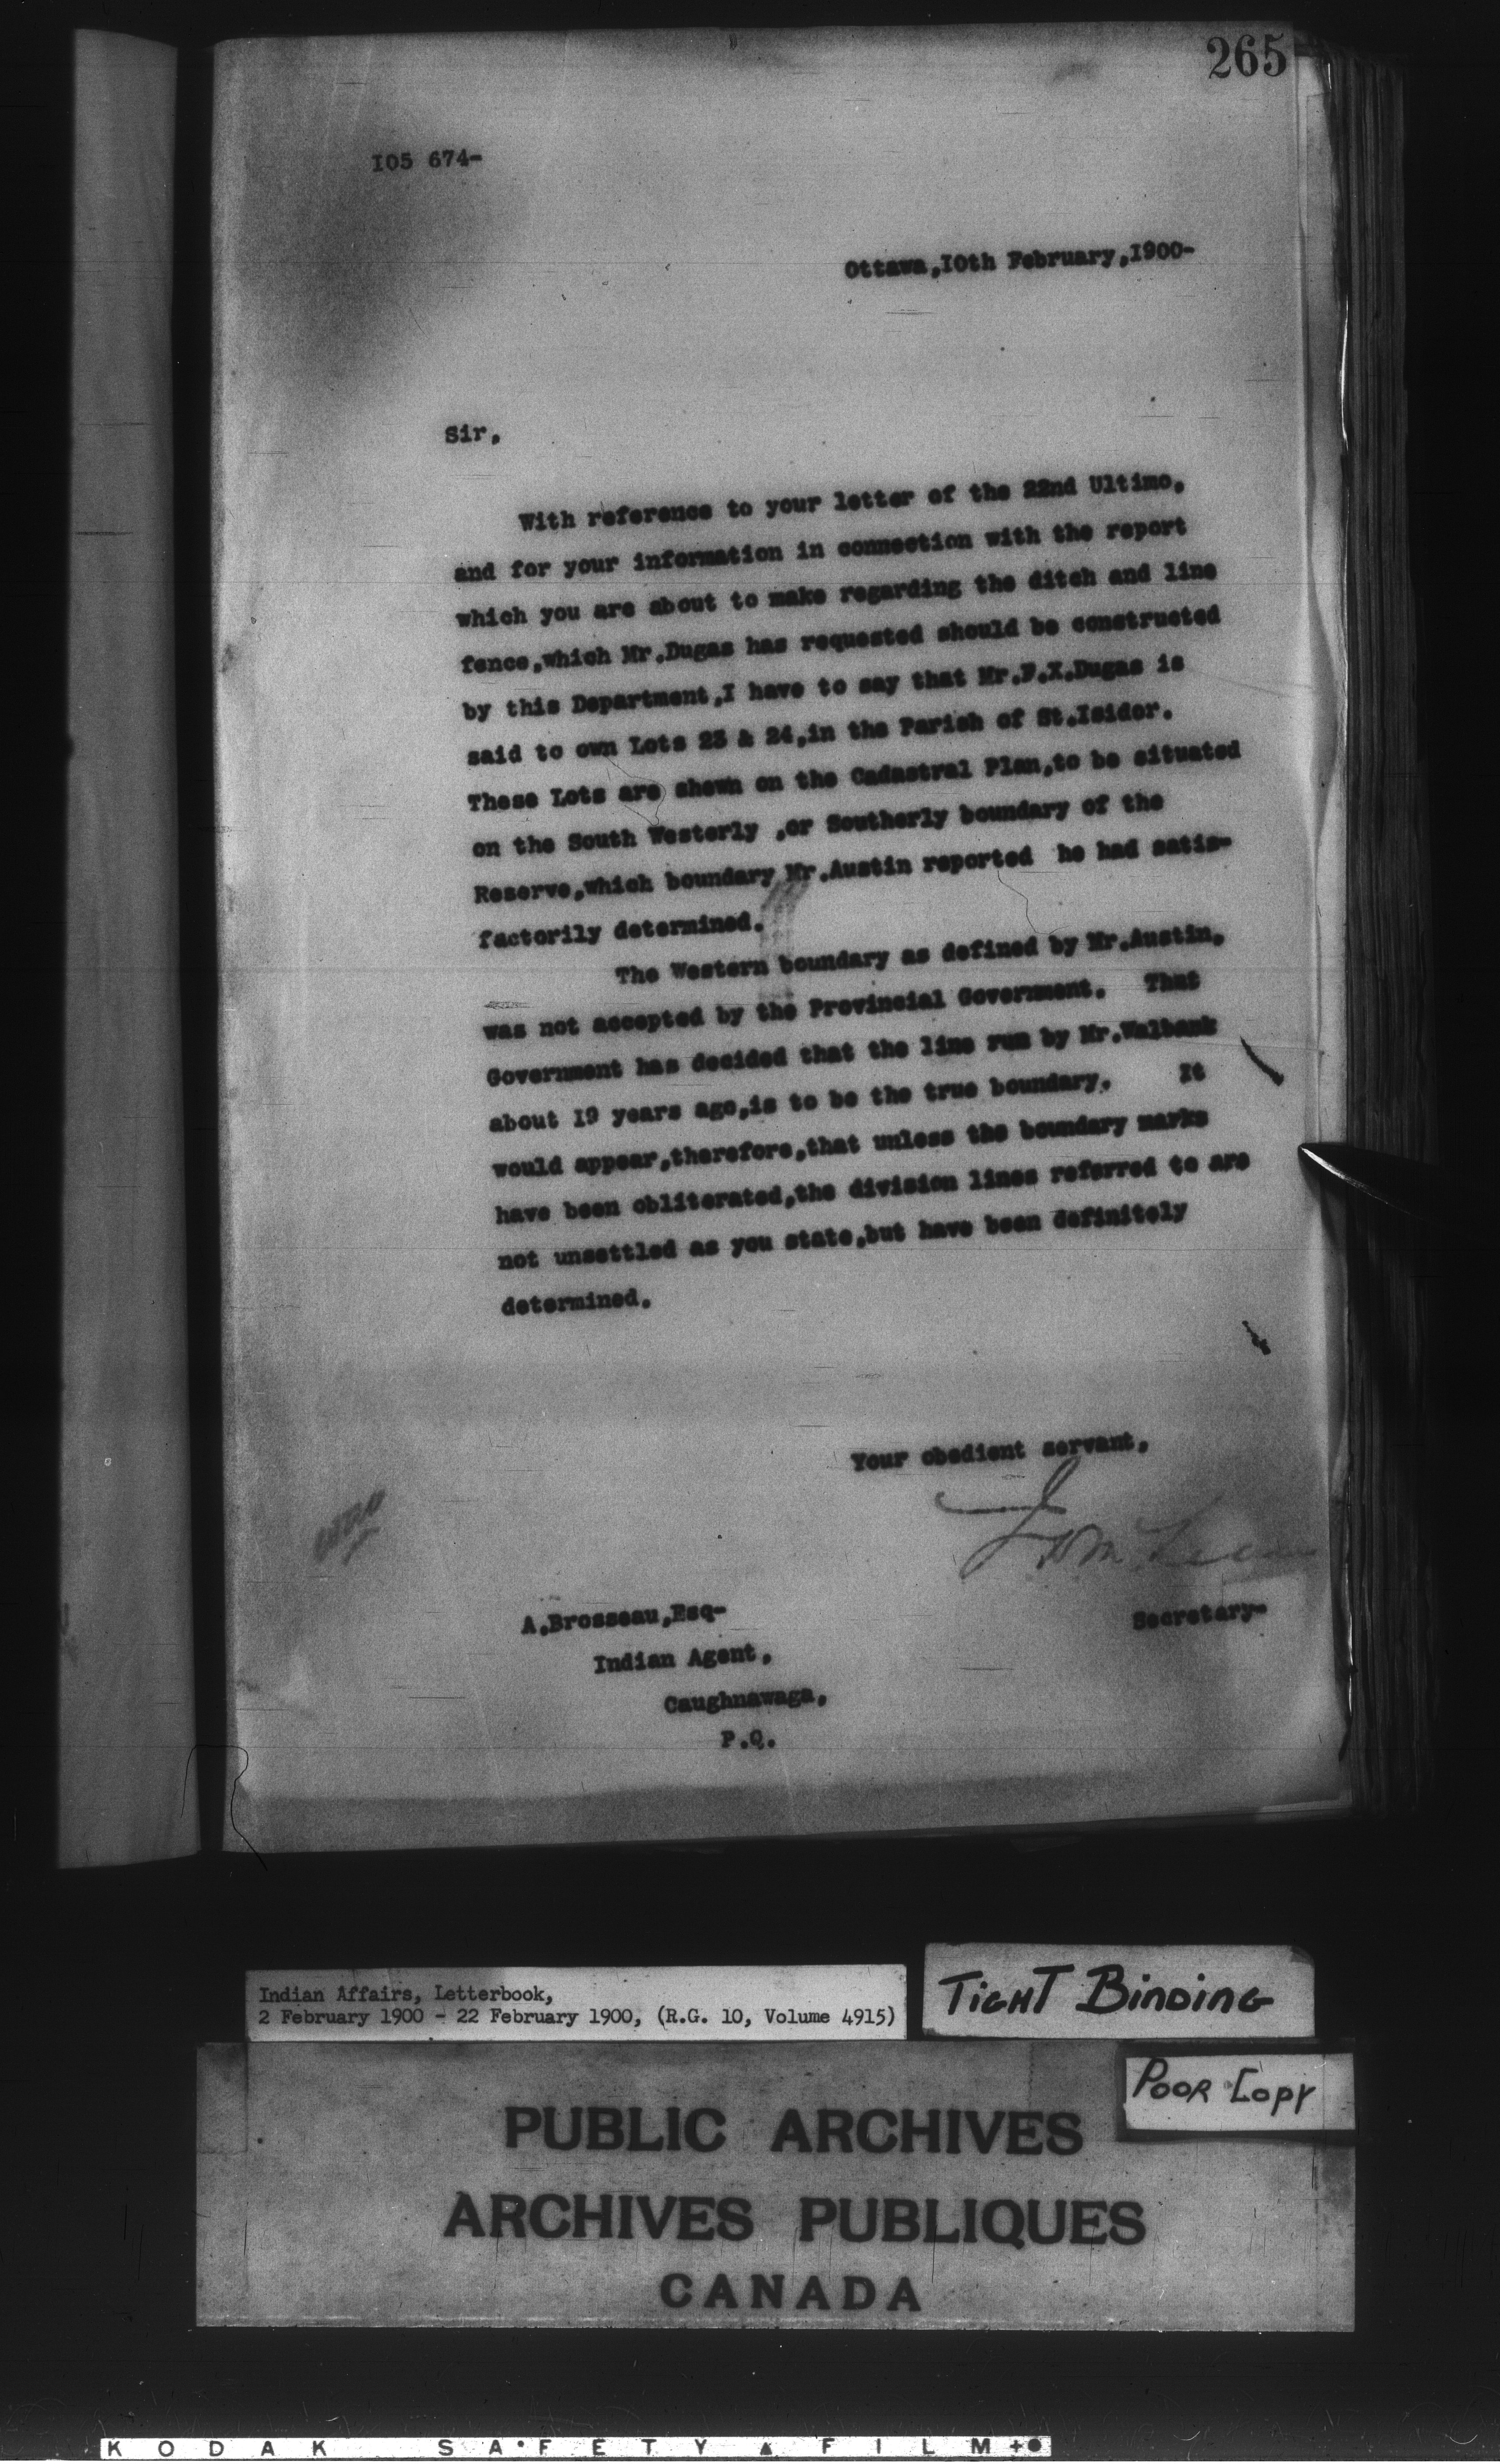 265
I05 674-
Ottawa,I0th February,I900-
Sir,
With reference to your letter of the 22nd Ultimo,
and for your information in connection with the report
which you are about to make regarding the ditch and line
fence,which Mr.Dugas has requested should be constructed
by this Department,I have to say that Mr.F.X.Dugas is
said to own Lots 23 & 24,in the Parish of St.Isidor.
These Lots are shewn on the Cadastral Plan,to be situated
on the South Westerly ,or Southerly boundary of the
Reserve,which boundary Mr.Austin reported he had satis-
factorily determined.
The Western boundary as defined by Mr.Austin,
was not accepted by the Provincial Government. That
Government has decided that the line run by Mr.Walbank
about I9 years ago,is to be the true boundary. It
would appear,therefore,that unless the boundary marks
have been obliterated,the division lines referred to are
not unsettled as you state,but have been definitely
determined.
Your obedient servant,
J.D. McLean
Secretary-
A.Brosseau,Esq-
Indian Agent,
Caughnawaga,
P.Q.
Indian Affairs, Letterbook,
2 February 1900 - 22 February 1900, (R.G. 10, Volume 4915)
TIGHT BINDING
POOR COPY
PUBLIC ARCHIVES
ARCHIVES PUBLIQUES
CANADA
KODAK SAFETY FILM